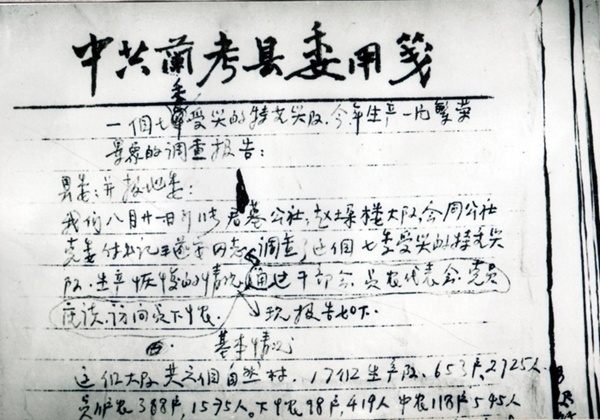 中共蘭考县委用箋
季
一個七季受灾的特克灾队,今年生产一片繁荣
景象的调查报告:
县委:并报地委:
我们八月廿一日到 君墓公社,赵垛楼大队,会同公社
党委付书记 同志,调查了这個七季受灾的特克灾
队,生产恢复的情况,通过干部会、贫农代表会、党员
座谈、访问贫下中农。 现报告如下。
一、基本情况
这個大队共 個自然村,17個生产队,653户,2925人。
贫农388户,1595人。下中农98户,419人 中农118户545人